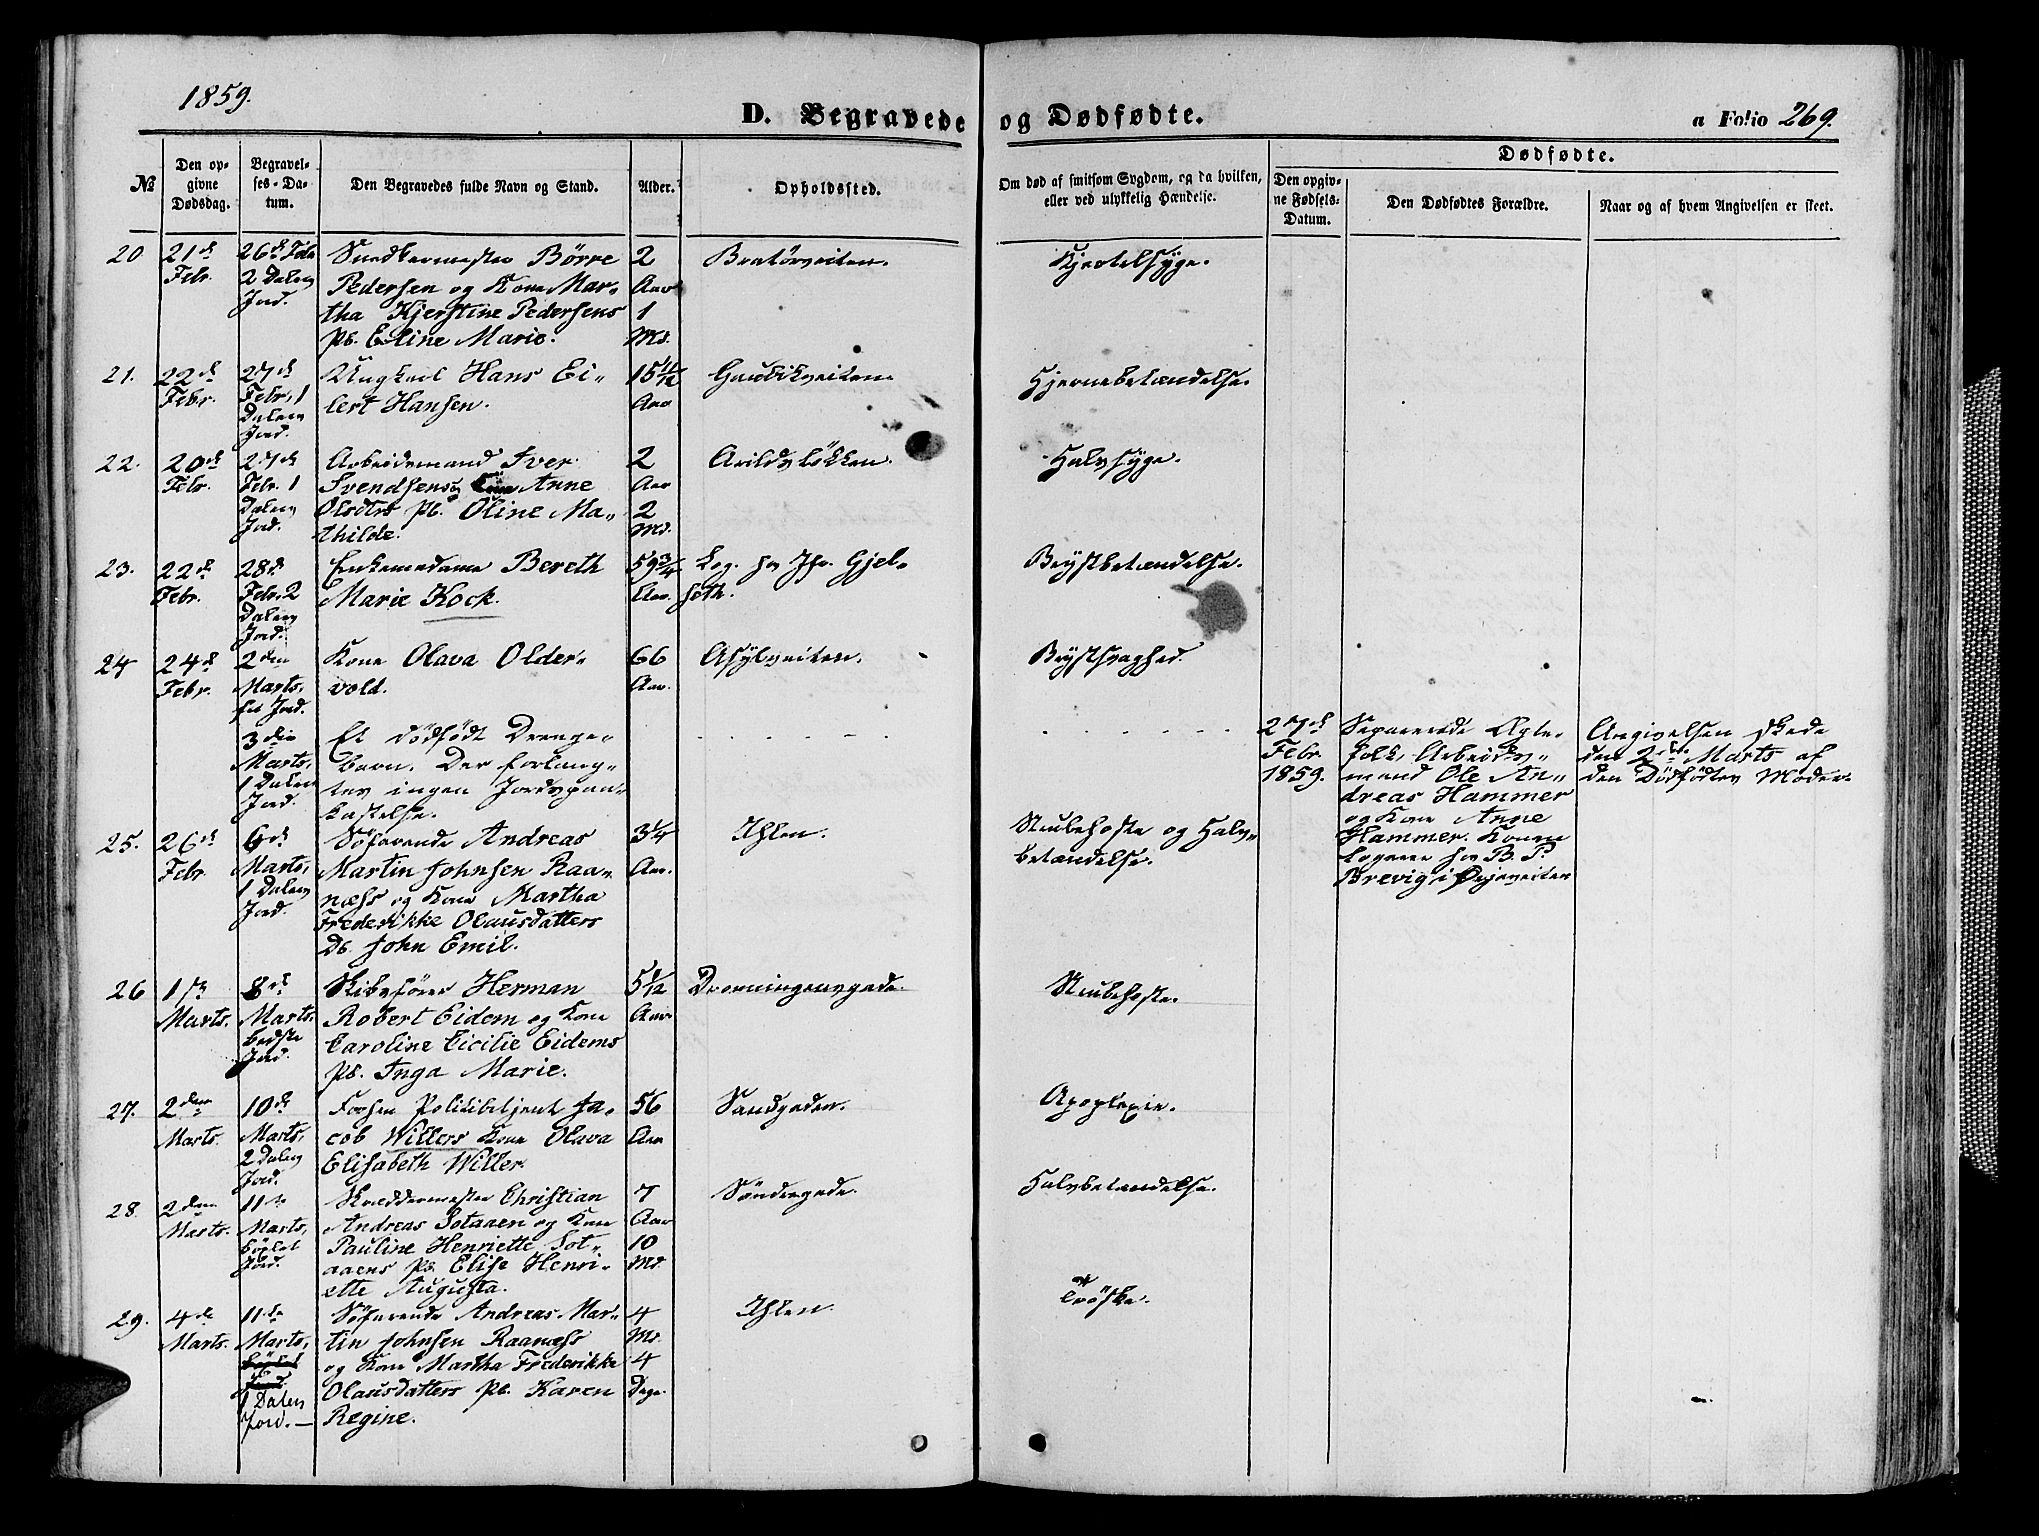 1859.
D. Begravede og Dødfødte.
a Folio 269.
Dødfødte.
№
Den op-
givne
Dødsdag.
Begravel-
ses-Da-
tum.
Den Begravedes fulde Navn og Stand.
Alder.
Opholdssted.
Om død af smitsom Sygdom, og da hvilken,
eller ved ulykkelig Hændelse.
Den opgiv-
ne Fødsels-
Datum.
Den Dødfødtes Forældre.
Naar og af hvem Angivelsen er skeet.
20
21de
Febr.
26de Febr
2 Dalers
Jord.
Snedkermester Börre
Pedersen og Kone Mar-
tha Kjerstine Pedersens
Pb. Eline Marie.
2
Aar
1
Md.
Bratörveiten.
Kjertelsyge.
21.
22de
Febr.
27de
Febr. 1
Dalers
Jord.
Ungkarl Hans Ei-
lert Hansen.
15 11/12
Aar
Gaubækveiten.
Hjernebetændelse.
22.
20de
Febr.
27de
Febr. 1
Dalers
Jord.
Arbeidsmand Iver
Svendsens og Kone Anne
Olsdtrs Pb. Oline Ma-
thilde.
2
Aar
2
Md.
Arildslökken.
Halssyge.
23.
22de
Febr.
28de
Febr. 2
Dalers
Jord.
Enkemadame Bereth
Marie Kock.
59 3/4
Aar.
Log. hos Jfr. Gjel-
seth.
Brystbetændelse.
24
24de
Febr.
2den
Marts,
fri Jord.
Kone Olava Older-
vold.
66
Aar.
Asylveiten.
Brystsvaghed.
3die
Marts,
1 Dalers
Jord.
Et dödfödt Drenge-
barn. Der forlang-
tes ingen Jordspaa-
kastelse.
27de
Febr.
1859.
Separerede Ægte-
folk, Arbeids-
mand Ole An-
dreas Hammer
og Kone Anne
Hammer. Konen
logerer hos B. P.
Brevig i Örjaveiten
Angivelsen skede
den 2den Marts af
den Dödfödtes Moder.
25.
26de
Febr.
6de
Marts,
1 Dalers
Jord.
Söfarende Andreas
Martin Johnsen Raa-
næss og Kone Martha
Frederikke Olausdatters
Db. John Emil.
3 1/4
Aar.
Ihlen.
Strubehoste og Hals-
betændelse.
26
1ste
Marts.
8de
Marts,
bedste
Jord.
Skibsförer Herman
Robert Eidem og Kone
Caroline Cicilie Eidems
Pb. Inga Marie.
5 1/12
Aar
Dronningensgade.
Strubehoste.
27.
2den
Marts.
10de
Marts,
2 Dalers
Jord.
Forhen Politibetjent Ja-
cob Willers Kone Olava
Elisabeth Willer.
56
Aar
Sandgaden.
Apoplexie.
28.
2den
Marts.
11te
Marts,
kjöbt
Jord.
Skreddermester Christian
Andreas Sotaaen og Kone
Pauline Henriette Sot-
aaens Pb. Elise Henri-
ette Augusta.
7
Aar
10
Md.
Söndregade.
Halsbetændelse.
29.
4de
Marts.
11te
Marts,
kjöbt
Jord.
1 Dalers
Jord.—
Söfarende Andreas Mar-
tin Johnsen Raanæss
og Kone Martha Frederikke
Olausdatters Pb. Karen
Regine.
4
Md.
4
Dage.
Ihlen.
Tröske.